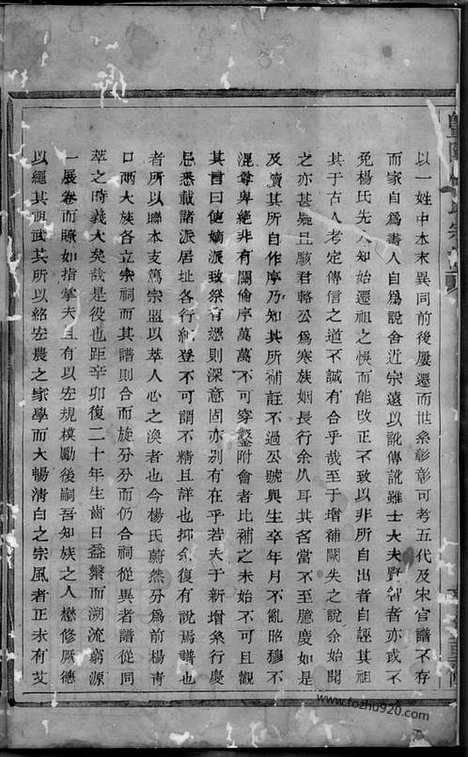 以一姓中本末異同前後屢遷而世系彰彰可考五代及宋官譜不存
而家自為書人自為說舍近宗遠以訛傳訛雖士大夫賢者亦或不
免楊氏先人知始遷祖之悞而能改正不致以非所自出者自誣其祖
其于古人考定傳信之道不誠有合乎哉至于增補闕失之說余始聞
之亦甚疑且駭君輅公為寒族姻長行余爪耳其名當不至臆度如是
及讀其所自作序乃知其所補註不過公號與生卒年月不亂昭穆不
混尊卑絶非有關倫序萬萬不可穿鑿附會者比補之未始不可且觀
其言曰使嫡派致祭有憑則深意固亦别有在乎若夫于新增築行慶
㞐悉載諸派居址各行細登不可謂不精且詳也抑余復有說焉譜也
者所以聯本支篤宗盟以萃人心之渙者也今楊氏蔚然分為前楊青
口兩大族各立宗祠而其譜則合而旋分分而仍合祠從異者譜從同
萃之時義大矣哉是役也距辛卯復二十年生齒日益繁而溯流窮源
一展卷而瞭如指掌夫且有以宏規模勵後嗣吾知族之人懋修厥德
以繩其祖武其所以紹宏農之家學而大暢清白之宗風者正未有艾
www.fozhu920.com